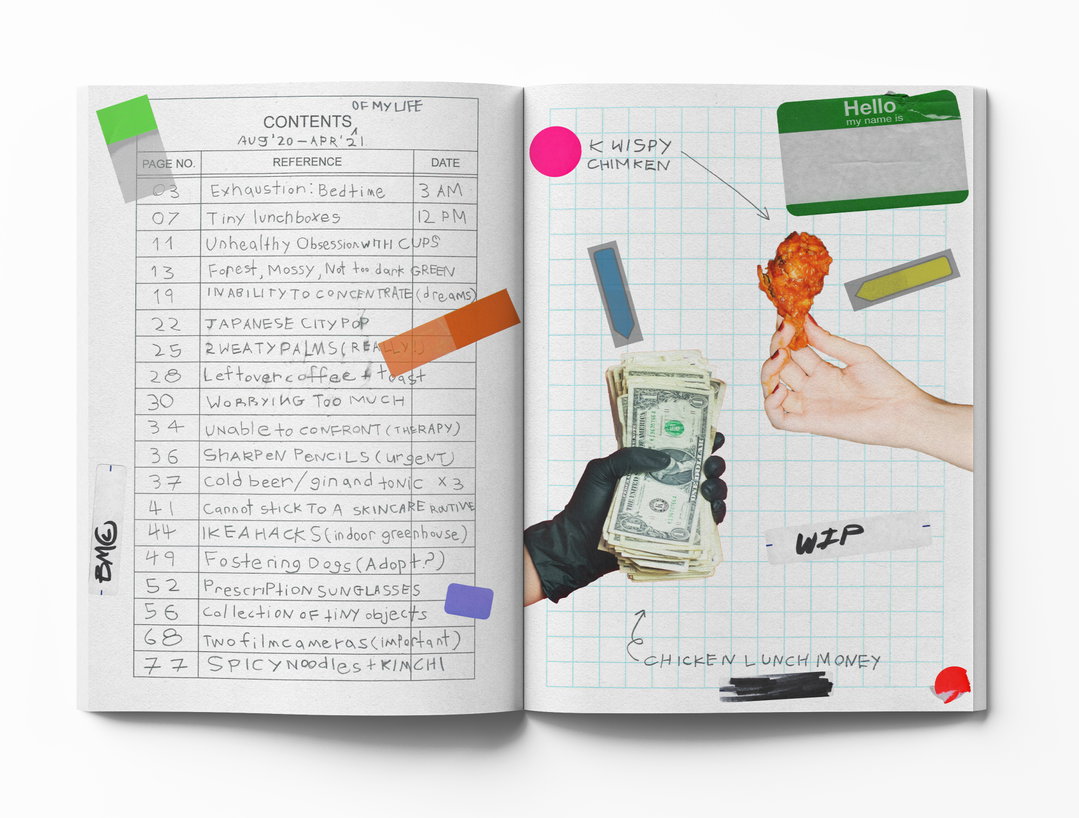 OF MY LIFE
CONTENTS
AUG '20 – APR '21
PAGE NO. REFERENCE DATE
03 Exhaustion: Bedtime 3 AM
07 Tiny lunchboxes 12 PM
11 Unhealthy Obsession WITH CUPS
13 Forest, Mossy, Not too dark GREEN
19 INABILITY TO CONCENTRATE (dreams)
22 JAPANESE CITY POP
25 SWEATY PALMS (REALLY!)
28 Leftover coffee + toast
30 WORRYING TOO MUCH
34 UNABLE to CONFRONT (THERAPY)
36 SHARPEN PENCILS (urgent)
37 cold beer/gin and tonic x3
41 Cannot stick TO A SKINCARE ROUTINE
44 IKEA HACKS (indoor greenhouse)
49 Fostering Dogs (Adopt?)
52 Prescription SUNGLASSES
56 Collection OF tiny objects
68 Two film cameras (important)
77 SPICY NOODLES + KIMCHI
BME
Hello
my name is
KWISPY
CHIMKEN
WIP
CHICKEN LUNCH MONEY